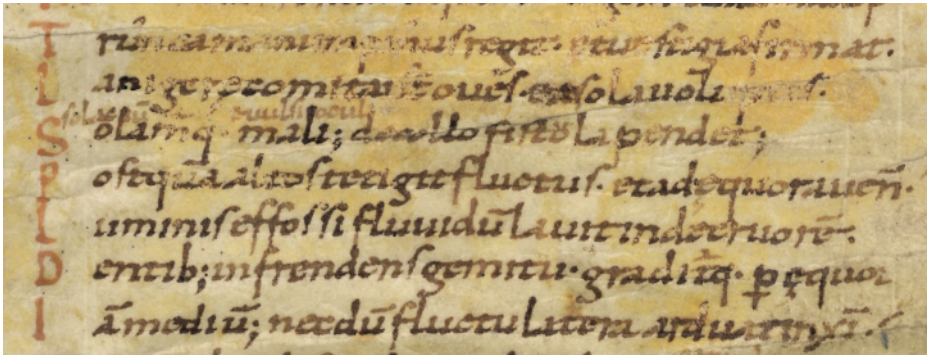 T rūca manum pinus regit· et uestigia firmat·
L anigere comitant̄ oues· ea sola uolup
S olamq· mali; de collo fistola pendet;
P ostquā altos tetigit fluctus· et ad ęquora uen̄·
L uminis effossi fluuidū lauit inde cruorē·
D entib; infrendens gemitu· gradit̄q· ꝑ ęquor
I ā mediū; necdū fluctu latera ardua tinxit·